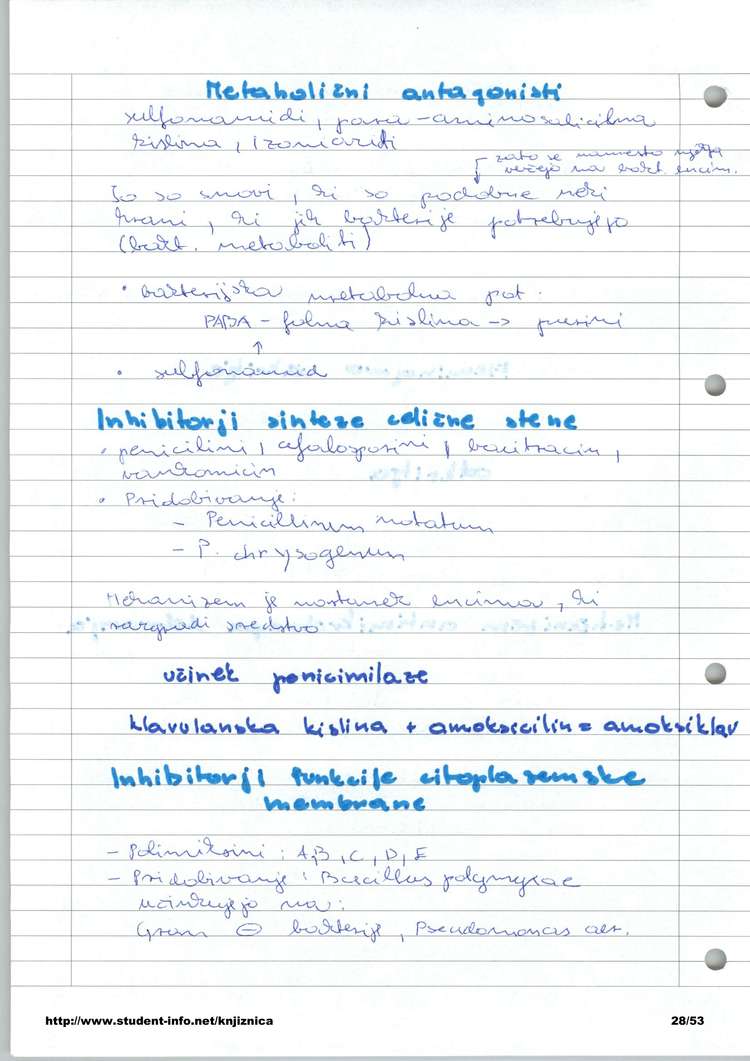 Metabolični antagonisti
sulfonamidi, para-aminosalicilna
kislina, Izoniazidi
zato se namesto njega
vežejo na bakt. encim.
To so snovi, ki so podobne neki
hrani, ki jih bakterije potrebujejo
(bakt. metaboliti)
• bakterijska metabolna pot.
PABA – folna kislina -> purini
↑
• sulfonamid
Inhibitorji sinteze celične stene
• penicilini, cefalosporini, bacitracin,
vankomicin
• Pridobivanje:
- Penicillinum notatum
- P. chrysogenum
Mehanizem je nastanek encimov, ki
razgradi sredstvo
učinek penicimilaze
klavulanska kislina + amoksicilin = amoksiklav
Inhibitorji funkcije citoplazemske
membrane
- Polimiksini: A,B,C,D,E
- Pridobivanje: Bacillus polymyxae
učinkujejo na:
Gram ⊖ bakterije, Pseudomonas aer.
http://www.student-info.net/knjiznica
28/53